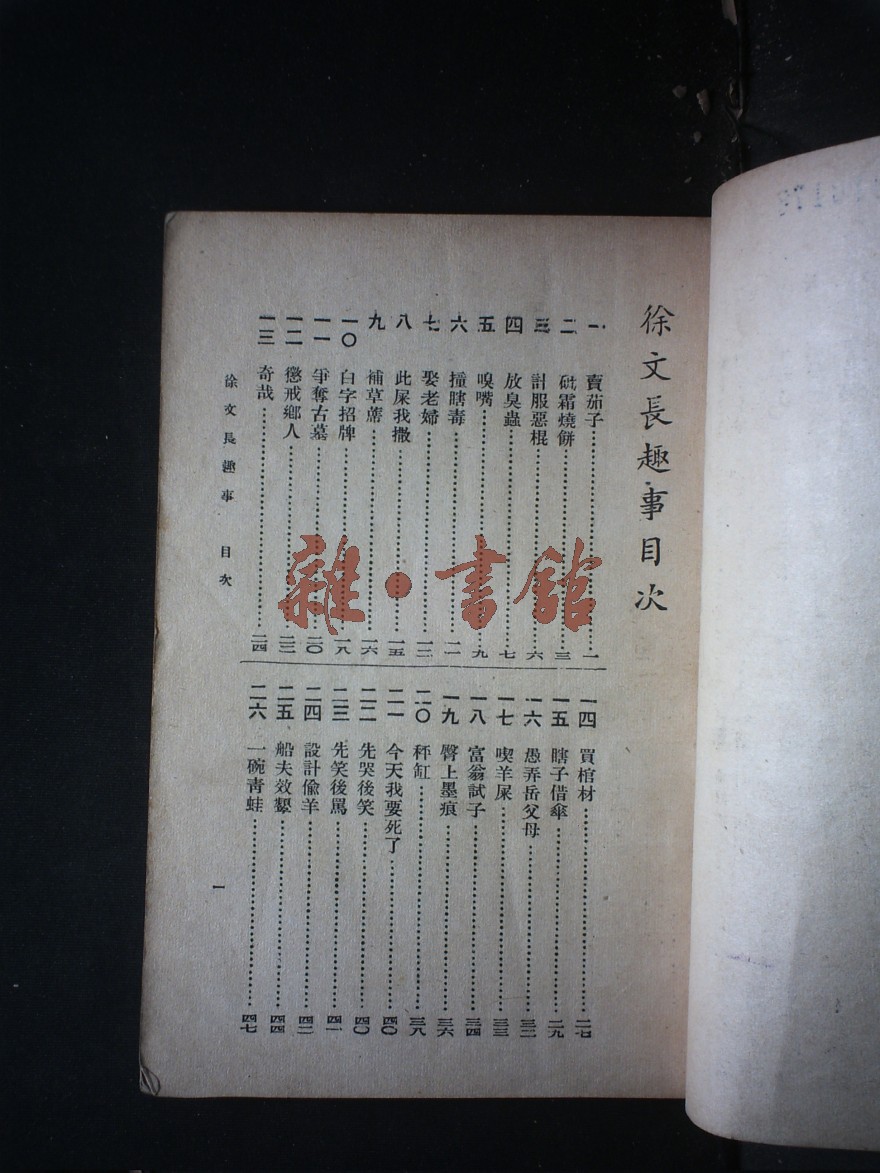 徐文長趣事目次
一 賣茄子 一
二 砒霜燒餅 三
三 討服惡棍 六
四 放臭蟲 七
五 嗅嘴 九
六 撞瞎毒 一一
七 娶老婦 一三
八 此屎我撒 一五
九 補草蓆 一六
一〇 白字招牌 一八
一一 爭奪古墓 二〇
一二 懲戒鄉人 二三
一三 奇哉 二四
一四 買棺材 二七
一五 瞎子借傘 二九
一六 愚弄岳父母 三二
一七 喫羊屎 三三
一八 富翁試子 三四
一九 臀上墨痕 三六
二〇 秤缸 三八
二一 今天我要死了 四〇
二二 先哭後笑 四〇
二三 先笑後罵 四一
二四 設計偸羊 四二
二五 船夫效顰 四四
二六 一碗靑蛙 四七
徐文長趣事 目次
一
雜·書館